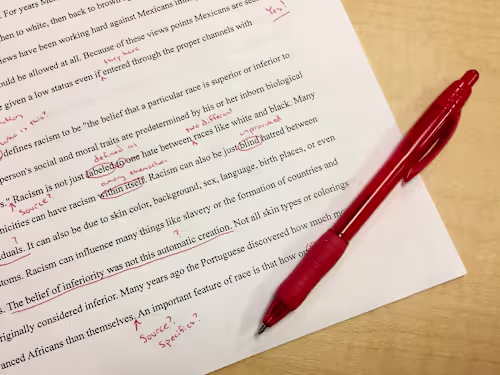 For years Mex
hen to white, then back to brown ag
iews have been working hard against Mexicans imm
ould be allowed at all. Because of these views points Mexicans are see
Yes!
they have
e given a low status even if entered through the proper channels with
who is this?
defines racism to be "the belief that a particular race is superior or inferior to
person's social and moral traits are predetermined by his or her inborn biological
two different
s." Racism is not just labeled to one hate between races like white and black. Many
defined as
unprovoked
Source?
among themselves
nicities can have racism within itself. Racism can also be just blind hatred between
?
duals. It can also be due to skin color, background, sex, language, birth places, or even
toms. Racism can influence many things like slavery or the formation of countries and
?
s. The belief of inferiority was not this automatic creation. Not all skin types or colorings
riginally considered inferior. Many years ago the Portuguese discovered how much mo
anced Africans than themselves. An important feature of race is that how
Source?
Specifics?